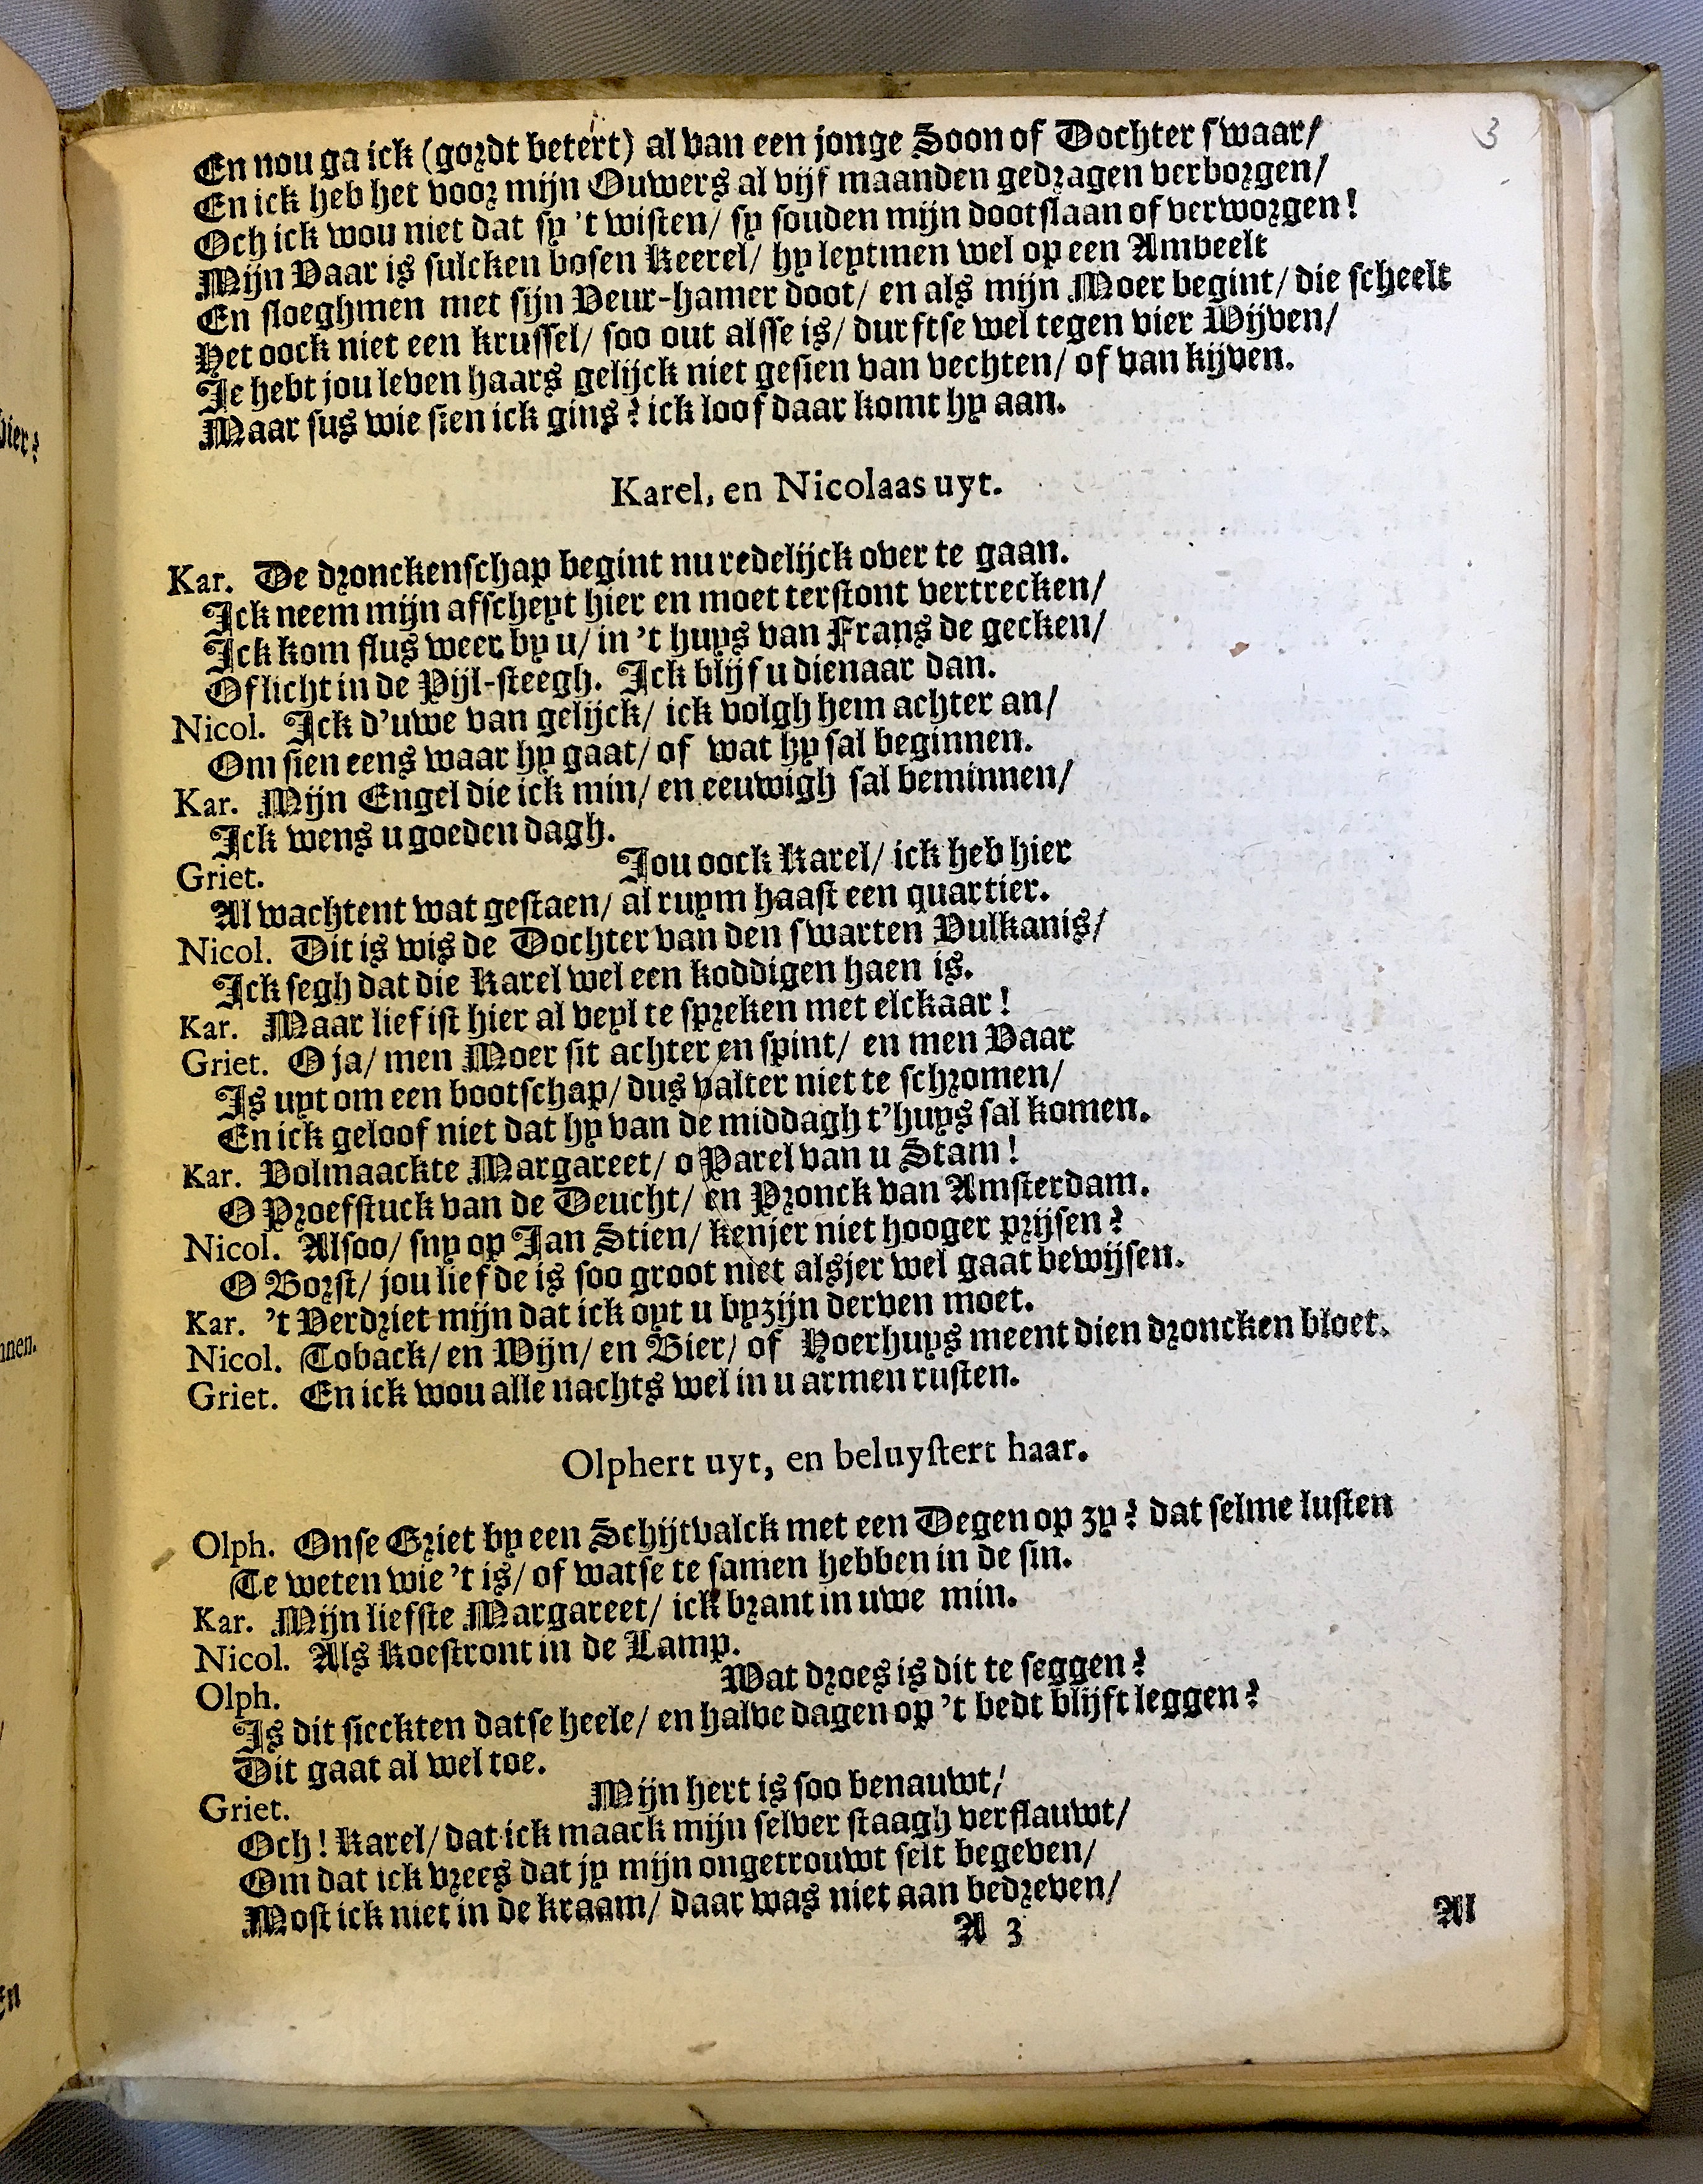 3
En nou ga ick (gordt betert) al van een jonge Soon of Dochter swaar/
En ick heb het voor mijn Ouwers al vijf maanden gedragen verborgen/
Och ick wou niet dat sy 't wisten/ sy souden mijn dootslaan of verworgen!
Mijn Vaar is sulcken bosen Keerel/ hy leytmen wel op een Ambeelt
En sloeghmen met sijn Veur-hamer doot/ en als mijn Moer begint/ die scheelt
Het oock niet een krussel/ soo out alsse is/ durftse wel tegen vier Wijven/
Je hebt jou leven haars gelijck niet gesien van vechten/ of van kijven.
Maar sus wie sien ick gins? ick loof daar komt hy aan.
Karel, en Nicolaas uyt.
Kar. De dronckenschap begint nu redelijck over te gaan.
Ick neem mijn afscheyt hier en moet terstont vertrecken/
Ick kom flus weer by u/ in 't huys van Frans de gecken/
Of licht in de Pijl-steegh. Ick blijf u dienaar dan.
Nicol. Ick d'uwe van gelijck/ ick volgh hem achter an/
Om sien eens waar hy gaat/ of wat hy sal beginnen.
Kar. Mijn Engel die ick min/ en eeuwigh sal beminnen/
Ick wens u goeden dagh.
Griet. Jou oock Karel/ ick heb hier
Al wachtent wat gestaen/ al ruym haast een quartier.
Nicol. Dit is wis de Dochter van den swarten Vulkanis/
Ick segh dat die Karel wel een koddigen haen is.
Kar. Maar lief ist hier al veyl te spreken met elckaar!
Griet. O ja/ men Moer sit achter en spint/ en men Vaar
Is uyt om een bootschap/ dus valter niet te schromen/
En ick geloof niet dat hy van de middagh t'huys sal komen.
Kar. Volmaackte Margareet/ o Parel van u Stam!
O Proefstuck van de Deucht/ en Pronck van Amsterdam.
Nicol. Alsoo/ sny op Jan Stien/ kenjer niet hooger prijsen?
O Borst/ jou liefde is soo groot niet alsjer wel gaat bewijsen.
Kar. 't Verdriet mijn dat ick oyt u byzijn derven moet.
Nicol. Toback/ en Wijn/ en Bier/ of Hoerhuys meent dien droncken bloet.
Griet. En ick wou alle nachts wel in u armen rusten.
Olphert uyt, en beluystert haar.
Olph. Onse Griet by een Schijtvalck met een Degen op zy? dat selme lusten
Te weten wie 't is/ of watse te samen hebben in de sin.
Kar. Mijn liefste Margareet/ ick brant in uwe min.
Nicol. Als Koestront in de Lamp.
Olph. Wat droes is dit te seggen?
Is dit sieckten datse heele/ en halve dagen op 't bedt blijft leggen?
Dit gaat al wel toe.
Griet. Mijn hert is soo benauwt/
Och! Karel/ dat ick maack mijn selver staagh verflauwt/
Om dat ick vrees dat jy mijn ongetrouwt selt begeven/
Most ick niet in de kraam/ daar was niet aan bedreven/
A 3
Al